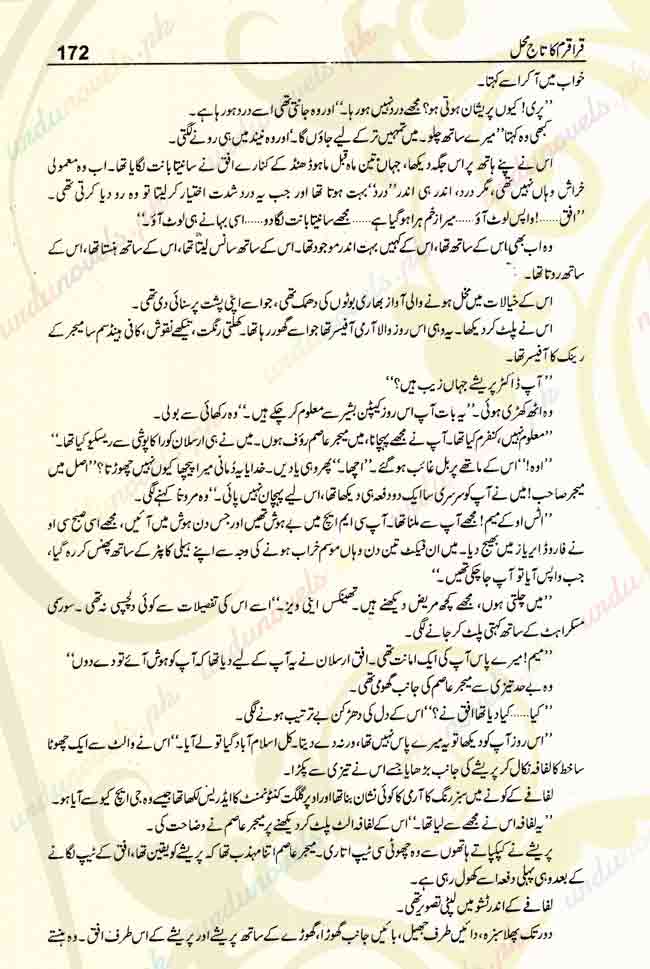 قراقرم کا تاج محل 172
خواب میں آ کر اسے کہتا۔
”پری! کیوں پریشان ہوتی ہو؟ مجھے درد نہیں ہو رہا۔“ اور وہ جانتی تھی اسے درد ہو رہا ہے۔
کبھی وہ کہتا ”میرے ساتھ چلو۔ میں تمہیں ترکے لیے جاؤں گا۔“ اور وہ نیند میں ہی رونے لگتی۔
اس نے اپنے ہاتھ پر اس جگہ دیکھا، جہاں تین ماہ قبل ماہوڈھنڈ کے کنارے افق نے سانیتا بانت لگایا تھا۔ اب وہ معمولی
خراش وہاں نہیں تھی، مگر درد، اندر ہی اندر ”درد“ بہت ہوتا تھا اور جب یہ درد شدت اختیار کر لیتا تو وہ رو دیا کرتی تھی۔
”افق......! واپس لوٹ آؤ......میرا زخم ہرا ہو گیا ہے......مجھے سانیتا بانت لگا دو......اسی بہانے ہی لوٹ آؤ۔“
وہ اب بھی اس کے ساتھ تھا، اس کے کہیں بہت اندر موجود تھا۔ اس کے ساتھ سانس لیتا تھا، اس کے ساتھ ہنستا تھا، اس کے
ساتھ روتا تھا۔
اس کے خیالات میں مخل ہونے والی آواز بھاری بوٹوں کی دھمک تھی، جو اسے اپنی پشت پر سنائی دی تھی۔
اس نے پلٹ کر دیکھا۔ یہ وہی اس روز والا آرمی آفیسر تھا جو اسے گھور رہا تھا۔ کھلتی رنگت، تیکھے نقوش، کافی ہینڈسم سا میجر کے
رینک کا آفیسر تھا۔
”آپ ڈاکٹر پریشے جہاں زیب ہیں؟“
وہ اٹھ کھڑی ہوئی۔ ”یہ بات آپ اس روز کیپٹن بشیر سے معلوم کر چکے ہیں۔“ وہ رکھائی سے بولی۔
”معلوم نہیں، کنفرم کیا تھا۔ آپ نے مجھے پہچانا، میں میجر عاصم رؤف ہوں۔ میں نے ہی ارسلان کو راکاپوشی سے ریسکیو کیا تھا۔“
”اوہ!“ اس کے ماتھے پر بل غائب ہو گئے۔ ”اچھا۔“ پھر وہی یادیں۔ خدایا یہ ڈمانی میرا پیچھا کیوں نہیں چھوڑتا؟ ”اصل میں
میجر صاحب! میں نے آپ کو سرسری سا ایک دو دفعہ ہی دیکھا تھا، اس لیے پہچان نہیں پائی۔“ وہ مروتاً کہنے لگی۔
”اٹس اوکے میم! مجھے آپ سے ملنا تھا۔ آپ سی ایم ایچ میں بے ہوش تھیں اور جس دن ہوش میں آئیں، مجھے اسی صبح سی او
نے فارورڈ ایریاز میں بھیج دیا۔ میں ان فیکٹ تین دن وہاں موسم خراب ہونے کی وجہ سے اپنے ہیلی کاپٹر کے ساتھ پھنس کر رہ گیا،
جب واپس آیا تو آپ جا چکی تھیں۔“
”میں چلتی ہوں، مجھے کچھ مریض دیکھنے ہیں۔ تھینکس اینی ویز۔“ اسے اس کی تفصیلات سے کوئی دلچسپی نہ تھی۔ سو رسمی
مسکراہٹ کے ساتھ کہتی پلٹ کر جانے لگی۔
”میم! میرے پاس آپ کی ایک امانت تھی۔ افق ارسلان نے یہ آپ کے لیے دیا تھا کہ آپ کو ہوش آئے تو دے دوں“
وہ بے حد تیزی سے میجر عاصم کی جانب گھومی تھی۔
”کیا......کیا دیا تھا افق نے؟“ اس کے دل کی دھڑکن بے ترتیب ہونے لگی۔
”اس روز آپ کو دیکھا تو یہ میرے پاس نہیں تھا، ورنہ دے دیتا۔ کل اسلام آباد گیا تو لے آیا۔“ اس نے والٹ سے ایک چھوٹا
سا خط کا لفافہ نکال کر پریشے کی جانب بڑھایا جسے اس نے تیزی سے پکڑا۔
لفافے کے کونے میں سبز رنگ کا آرمی کا کوئی نشان بنا تھا اور اوپر گلگت کنٹونمنٹ کا ایڈریس لکھا تھا جیسے وہ جی ایچ کیو سے آیا ہو۔
”یہ لفافہ اس نے مجھ سے لیا تھا۔“ اس کے لفافہ الٹ پلٹ کر دیکھنے پر میجر عاصم نے وضاحت کی۔
پریشے نے کپکپاتے ہاتھوں سے وہ چھوٹی سی ٹیپ اتاری۔ میجر عاصم اتنا مہذب تھا کہ پریشے کو یقین تھا، افق کے ٹیپ لگانے
کے بعد وہی پہلی دفعہ اسے کھول رہی ہے۔
لفافے کے اندر ٹشو میں لپٹی تصویر تھی۔
دور تک پھیلا سبزہ، دائیں طرف جھیل، بائیں جانب گھوڑا، گھوڑے کے ساتھ پریشے اور پریشے کے اس طرف افق۔ وہ ہنستے